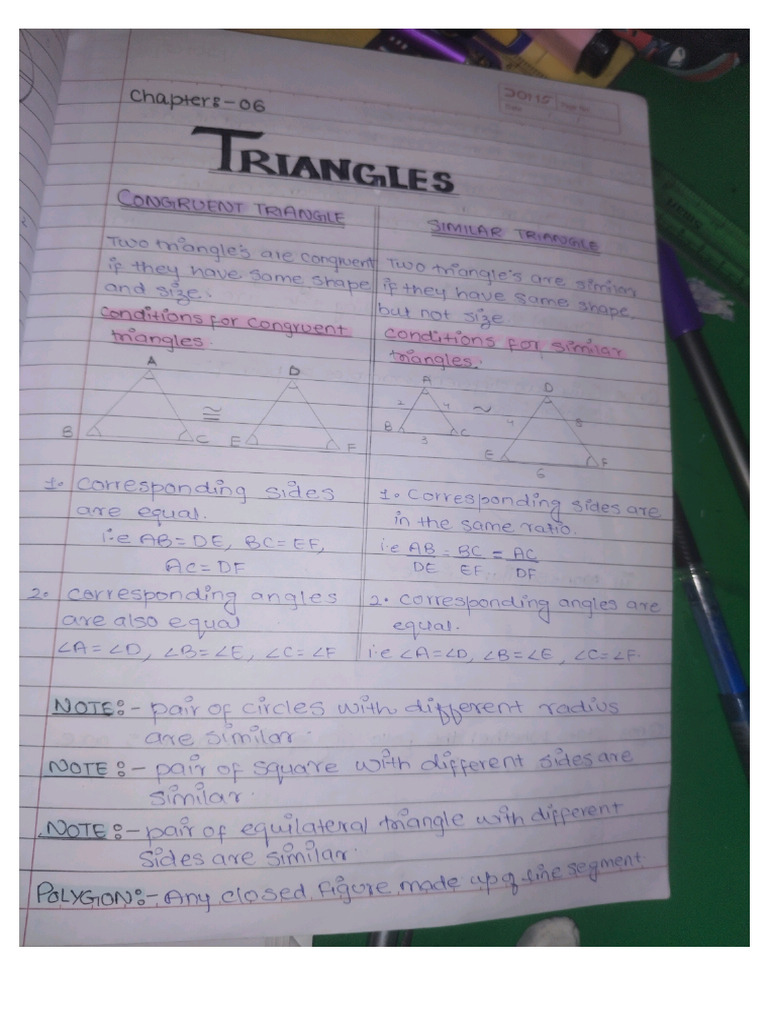 Chapter:-06
TRIANGLES
CONGRUENT TRIANGLE
Two triangle's are congruent
if they have same shape
and size.
Conditions for congruent
triangles.
A
D
≅
B
C
E
F
1. Corresponding sides
are equal.
i.e AB=DE, BC=EF,
AC=DF
2. Corresponding angles
are also equal
∠A=∠D, ∠B=∠E, ∠C=∠F
SIMILAR TRIANGLE
Two triangle's are similar
if they have same shape,
but not size
Conditions for similar
triangles.
A
D
2 4 ~ 4 8
B
C
3
E
F
6
1. Corresponding sides are
in the same ratio.
i.e AB = BC = AC
DE EF DF
2. Corresponding angles are
equal.
i.e ∠A=∠D, ∠B=∠E, ∠C=∠F.
NOTE:- pair of circles with different radius
are similar.
NOTE:- pair of square with different sides are
similar.
NOTE:- pair of equilateral triangle with different
sides are similar.
POLYGION:- Any closed figure made up of line segment